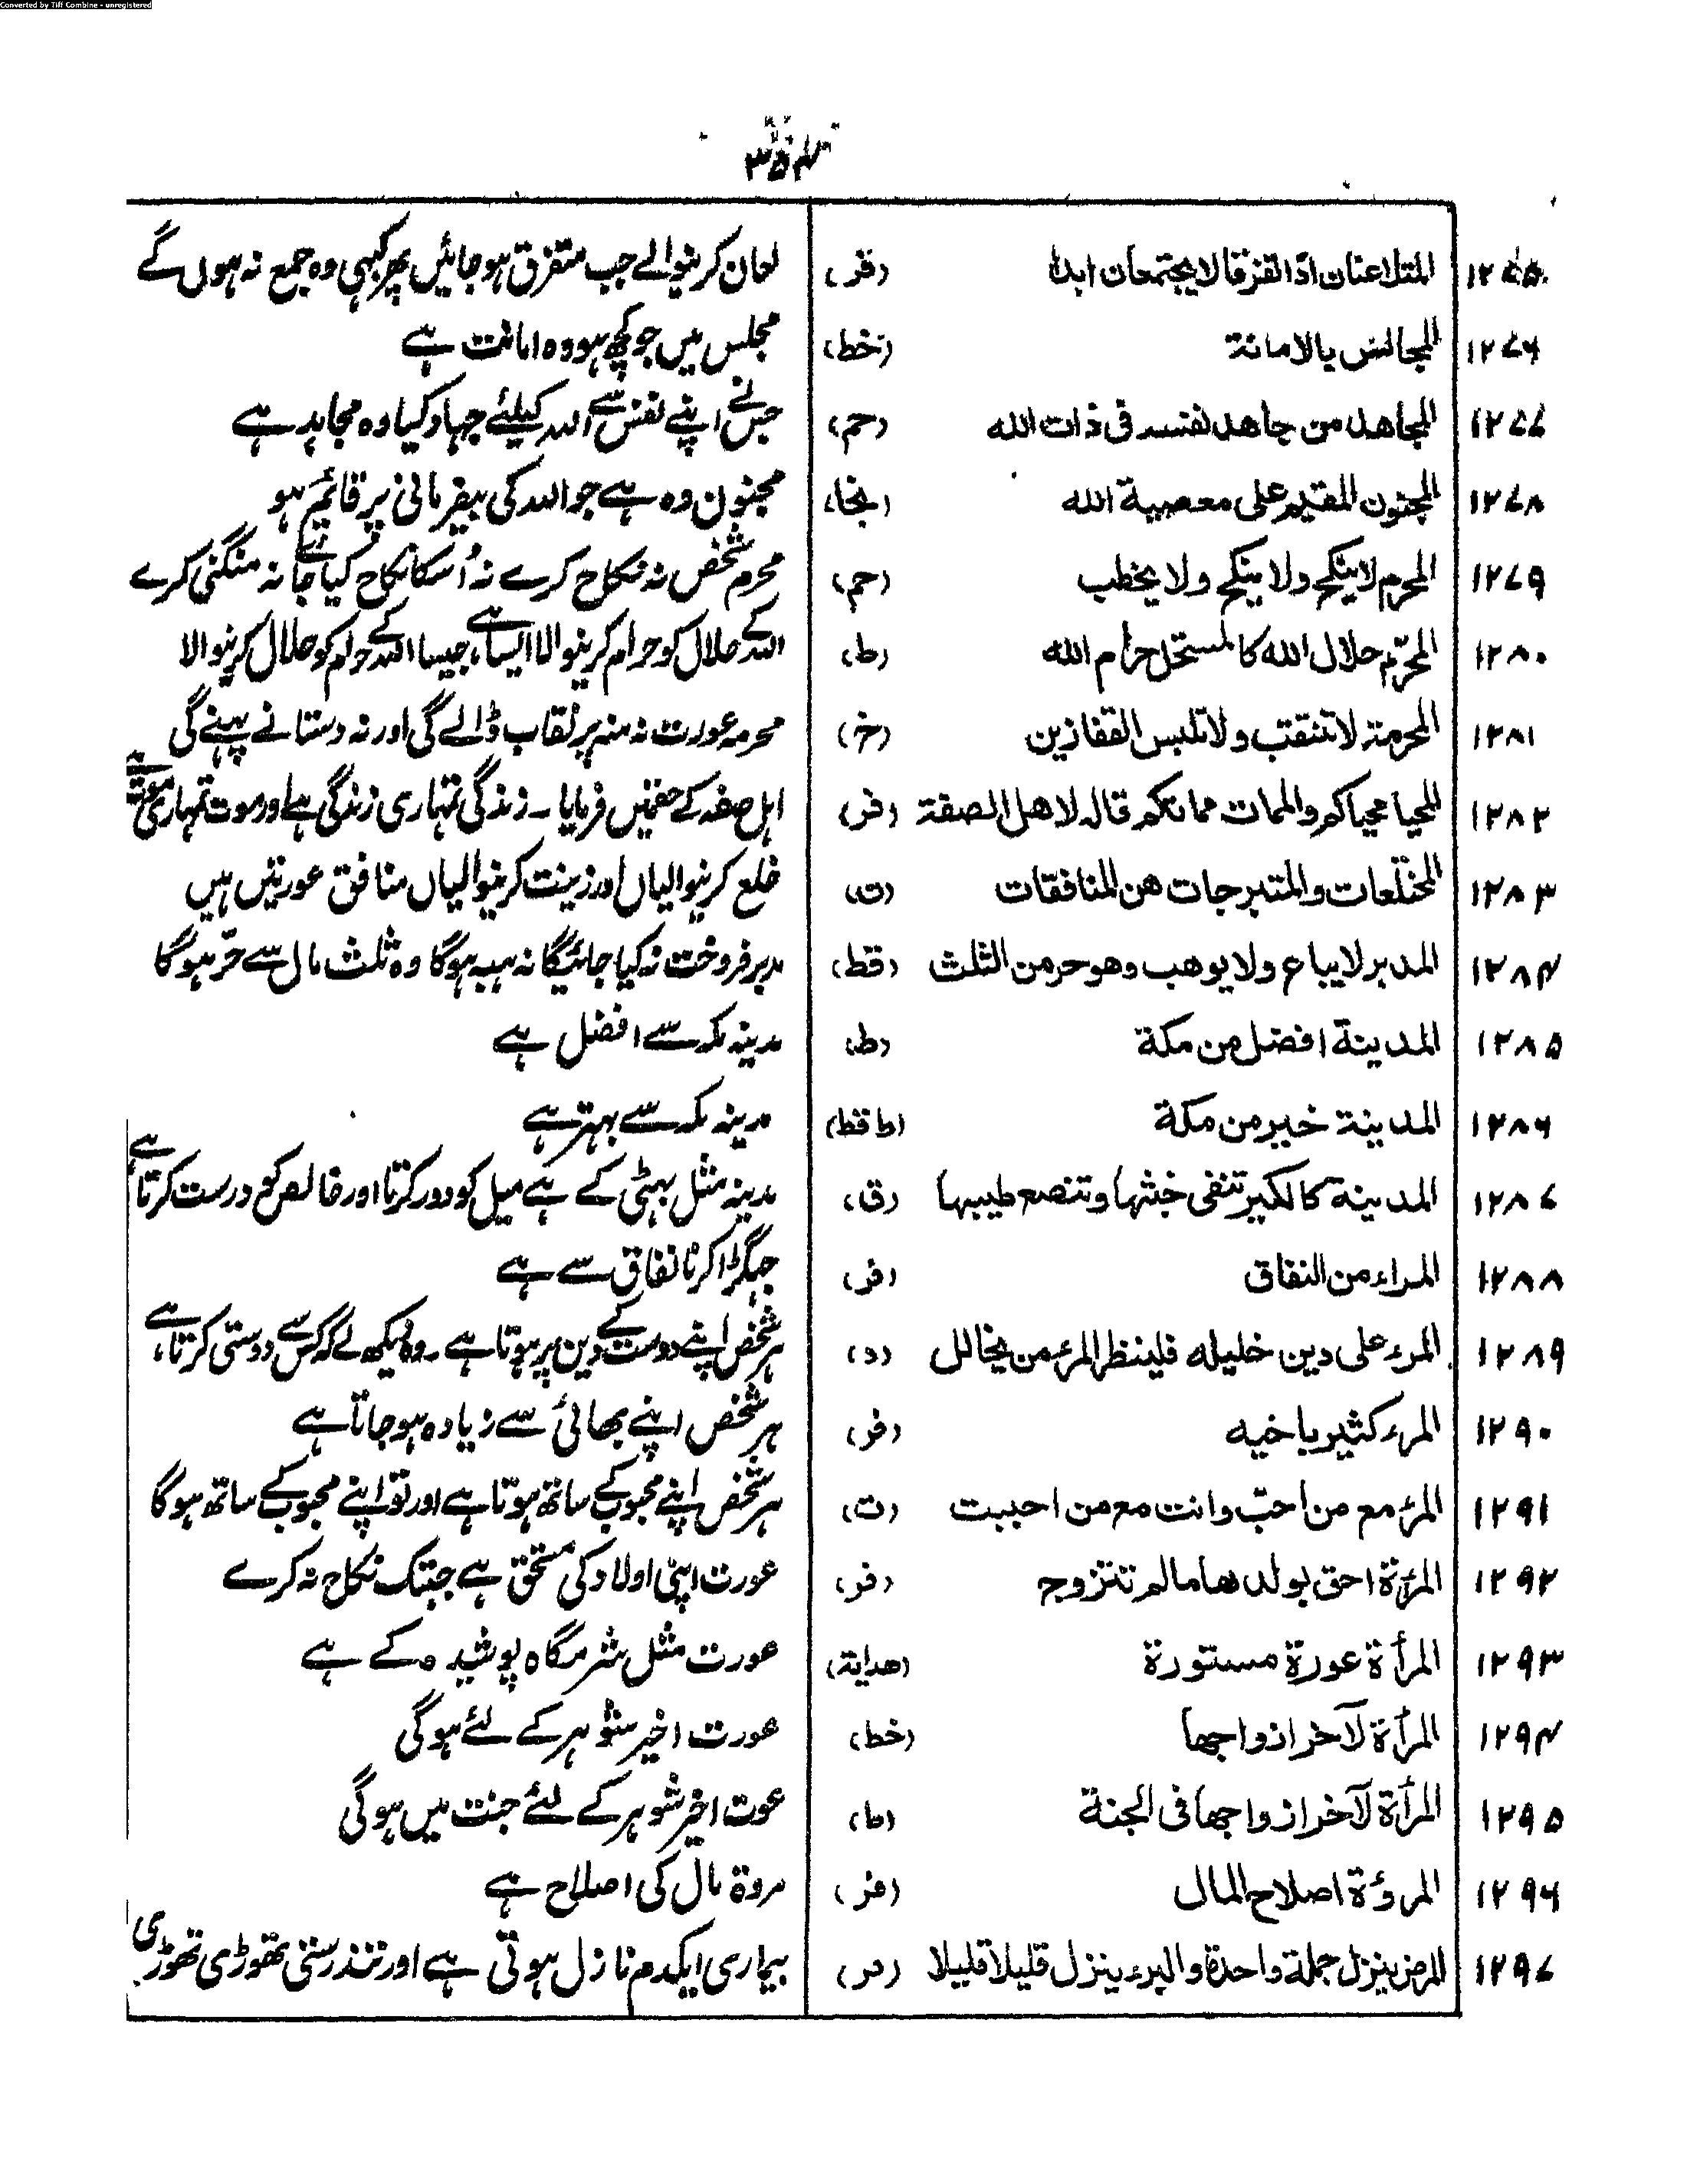 Converted by Tiff Combine - unregistered
۳۵۴
۱۲۷۵ المتلاعنان اذا تفرقا لا یجتمعان ابدا (قر) لعان کرنیوالے جب متفرق ہوجائیں پھر کبہی وہ جمع نہ ہوں گے
۱۲۷۶ المجالس بالامانة (خط) مجلس میں جو کچھ ہو وہ امانت ہے
۱۲۷۷ المجاهد من جاهد نفسه فی ذات الله (حم) جس نے اپنے نفس سے اللہ کیلئے جہاد کیا وہ مجاہد ہے
۱۲۷۸ المجنون المقیم علی معصیة الله (نجا) مجنون وہ ہے جو اللہ کی بیفرمانی پر قائیم ہو
۱۲۷۹ المحرم لا ینکح ولا ینکح ولا یخطب (حم) محرم شخص نہ نکاح کرے نہ اُسکا نکاح کیا جائے نہ منگنی کرے
۱۲۸۰ المحرّم حلال الله کالمستحل حرام الله (ط) اللہ کے حلال کو حرام کرنیوالا ایسا ہے، جیسا اللہ کے حرام کو حلال کرنیوالا
۱۲۸۱ المحرمة لا تنتقب ولا تلبس القفازین (خ) محرمہ عورت نہ منہ پر نقاب ڈالے گی اور نہ دستانے پہنے گی
۱۲۸۲ المحیا محیاکم والممات مماتکم قاله لاهل الصفة (فر) اہل صفہ کے حقمیں فرمایا ۔ زندگی تمہاری زندگی ہے اور موت تمہاری موت ہے
۱۲۸۳ المختلعات والمتبرجات هن المنافقات (ت) خلع کرنیوالیاں اور زینت کرنیوالیاں منافق عورتیں ہیں
۱۲۸۴ المدبر لا یباع ولا یوهب وهو حر من الثلث (قط) مدبر فروخت نہ کیا جائیگا نہ ہبہ ہوگا وہ ثلث مال سے حر ہوگا
۱۲۸۵ المدینة افضل من مکة (ط) مدینہ مکہ سے افضل ہے
۱۲۸۶ المدینة خیر من مکة (ط قط) مدینہ مکہ سے بہتر ہے
۱۲۸۷ المدینة کالکیر تنفی خبثها وتنصع طیبها (ق) مدینہ مثل بہٹی کے ہے میل کو دور کرتا اور خالص کو درست کرتا ہے
۱۲۸۸ المراء من النفاق (فر) جہگڑا کرنا نفاق سے ہے
۱۲۸۹ المرء علی دین خلیله فلینظر المرء من یخالل (د) ہر شخص اپنے دوست کے دین پر ہوتا ہے ۔ وہ دیکھ لے کہ کس سے دوستی کرتا ہے،
۱۲۹۰ المرء کثیر باخیه (فر) ہر شخص اپنے بھائی سے زیادہ ہوجاتا ہے
۱۲۹۱ المرء مع من احبّ وانت مع من احببت (ت) ہر شخص اپنے محبوب کے ساتھ ہوتا ہے اور تو اپنے محبوب کے ساتھ ہوگا
۱۲۹۲ المرءة احق بولدها ما لم تتزوج (فر) عورت اپنی اولاد کی مستحق ہے جبتک نکاح نہ کرے
۱۲۹۳ المرأة عورة مستورة (هدایة) عورت مثل شرمگاہ پوشیدہ کے ہے
۱۲۹۴ المرأة لآخر ازواجها (خط) عورت اخیر شوہر کے لئے ہوگی
۱۲۹۵ المرأة لآخر ازواجها فی الجنة (ط) عوت اخیر شوہر کے لئے جنت میں ہوگی
۱۲۹۶ المروءة اصلاح المال (فر) مروة مال کی اصلاح ہے
۱۲۹۷ المرض ینزل جملة واحدة والبرء ینزل قلیلا قلیلا (فر) بیماری ایکدم نازل ہوتی ہے اور تندرستی تھوڑی تھوڑی